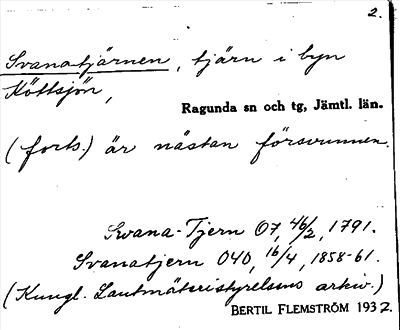 2.
Svanatjärnen, tjärn i byn
Köttsjön,
Ragunda sn och tg, Jämtl. län.
(forts.) är nästan försvunnen.
Swana-Tjern O7, 46/2, 1791.
Svanatjern O40, 16/4, 1858-61.
(Kungl. Lantmäteristyrelsens arkiv.)
BERTIL FLEMSTRÖM 1932.